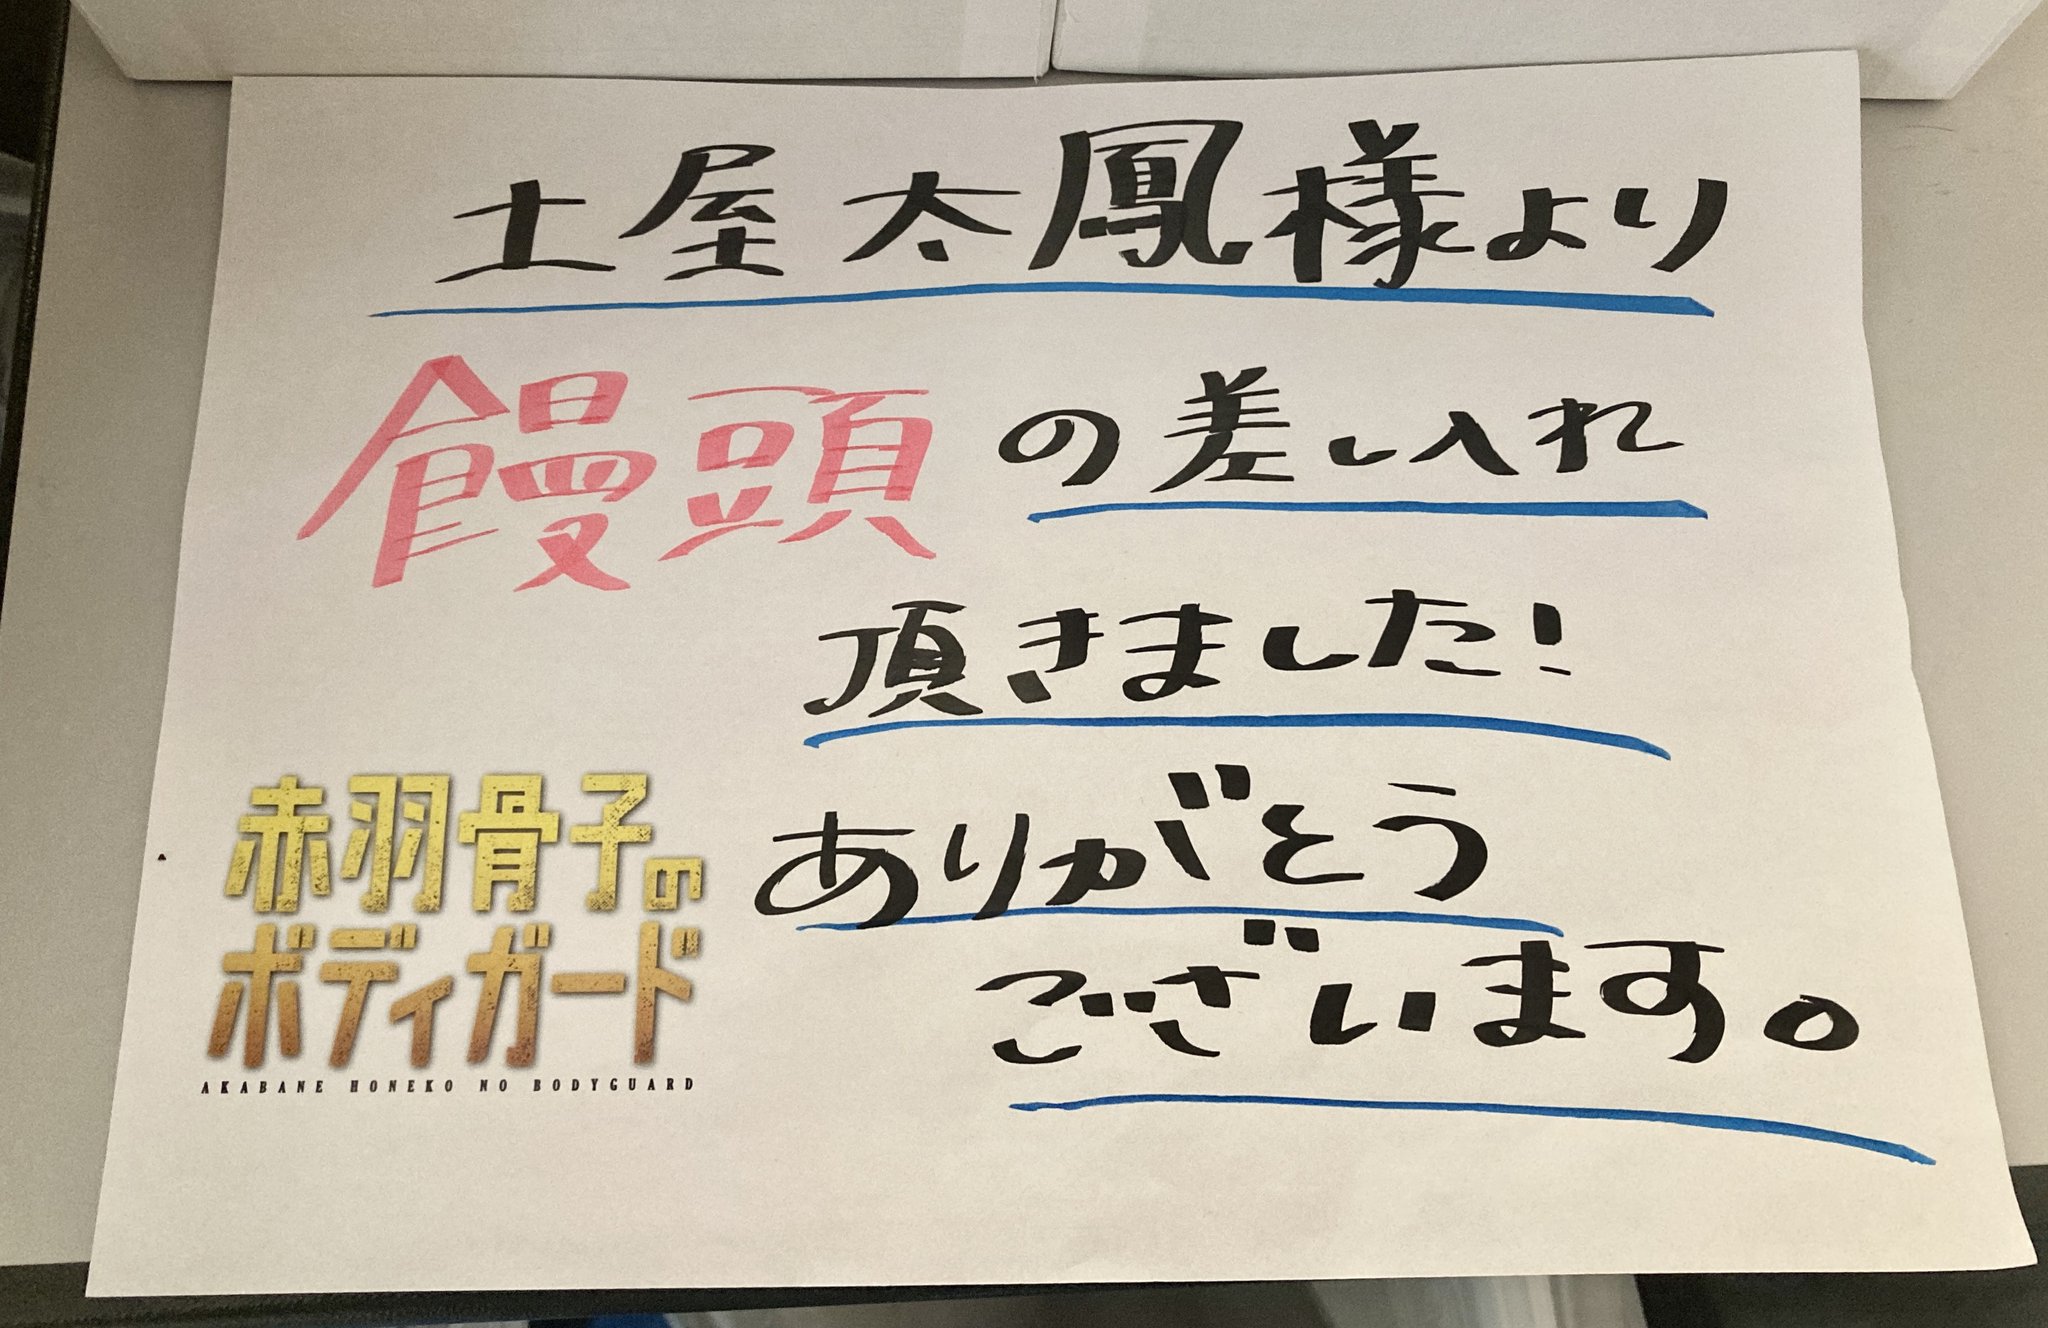 土屋太鳳様より
饅頭の差し入れ
頂きました!
ありがとう
ございます。
赤羽骨子の
ボディガード
AKABANE HONEKO NO BODYGUARD